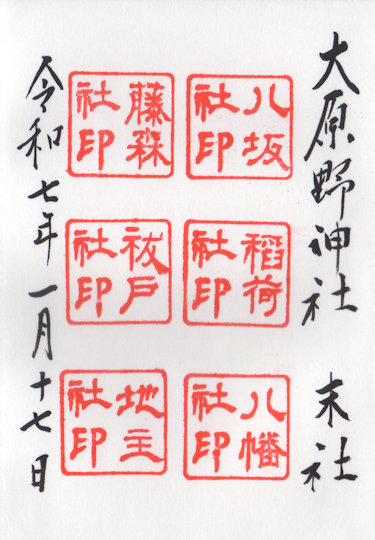 大原野神社 末社
八坂社印
藤森社印
稲荷社印
祓戸社印
八幡社印
地主社印
令和七年一月十七日